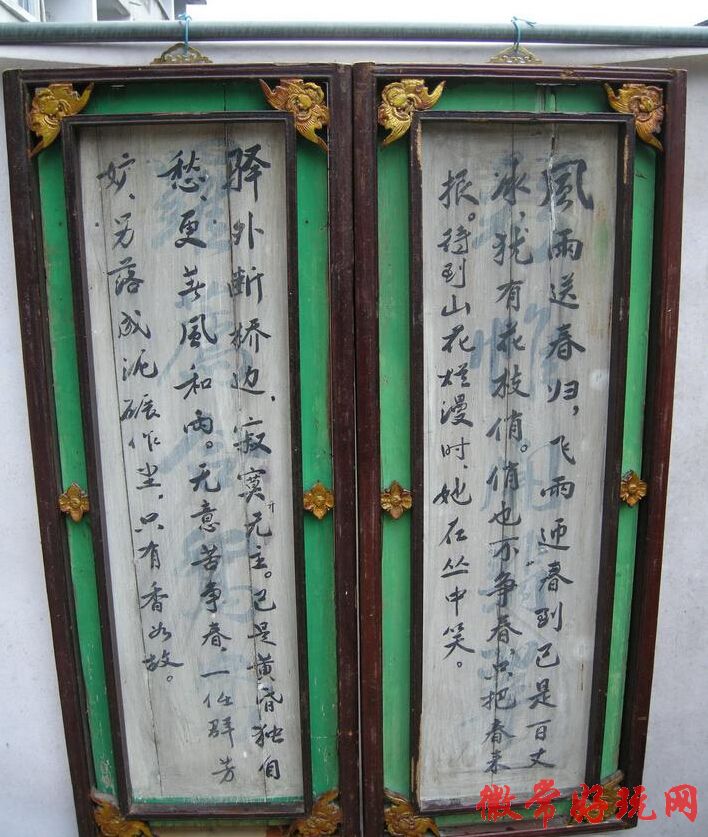 風雨送春归，飞雨迎春到已是百丈
冰，犹有花枝俏。俏也不争春，只把春来
报。待到山花烂漫时，她在丛中笑。
驿外断桥边，寂寞开无主。已是黄昏独自
愁、更著風和雨。无意苦争春，一任群芳
妒、另落成泥碾作尘，只有香如故。
徽常好玩网